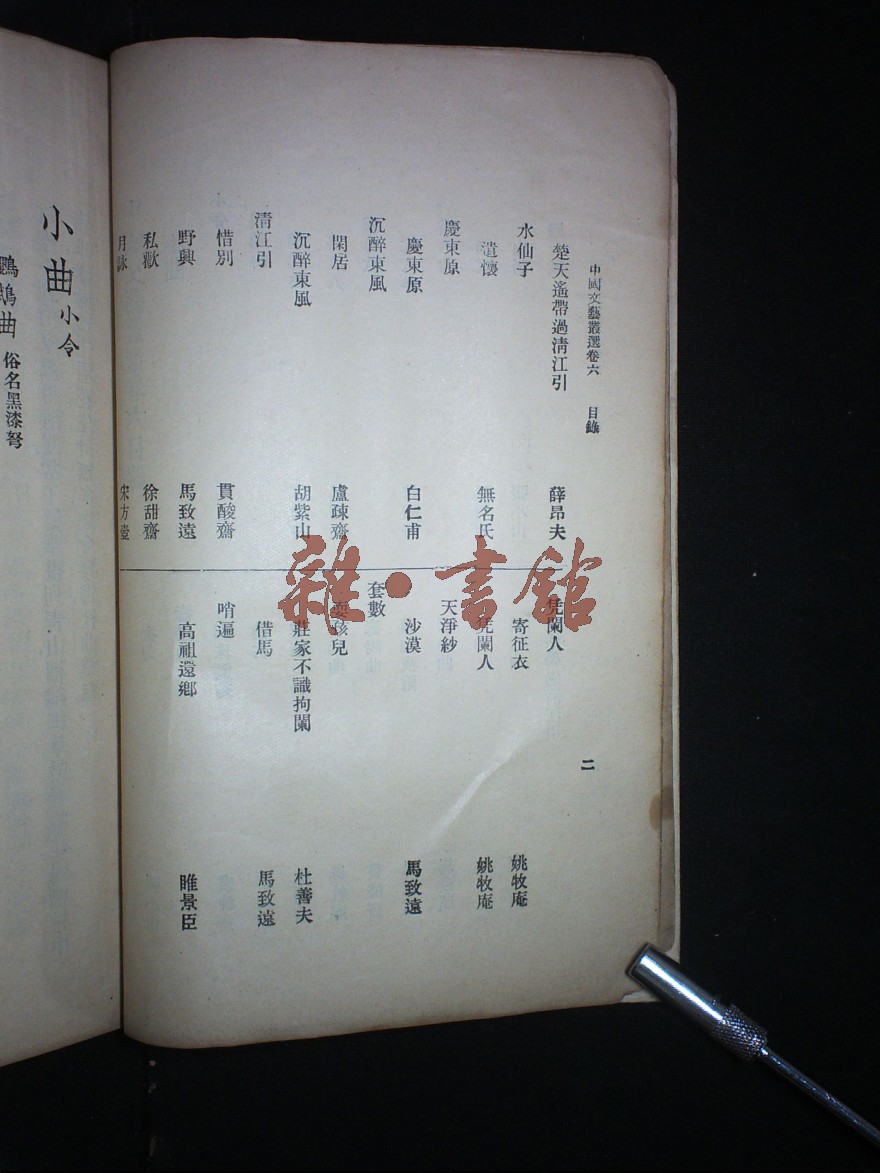 中國文藝叢選卷六　目錄
二
楚天遙帶過淸江引　薛昂夫
水仙子
遣懷　無名氏
慶東原
慶東原　白仁甫
沉醉東風
閑居　盧疎齋
沉醉東風　胡紫山
淸江引
惜別　貫酸齋
野興　馬致遠
私歡　徐甜齋
月詠　宋方壺
凭闌人
寄征衣　姚牧庵
凭闌人　姚牧庵
天淨紗
沙漠　馬致遠
套數
耍孩兒
莊家不識拘闌　杜善夫
借馬　馬致遠
哨遍
高祖還鄕　睢景臣
小曲 小令
鸚鵡曲 俗名黑漆弩
雜·書館